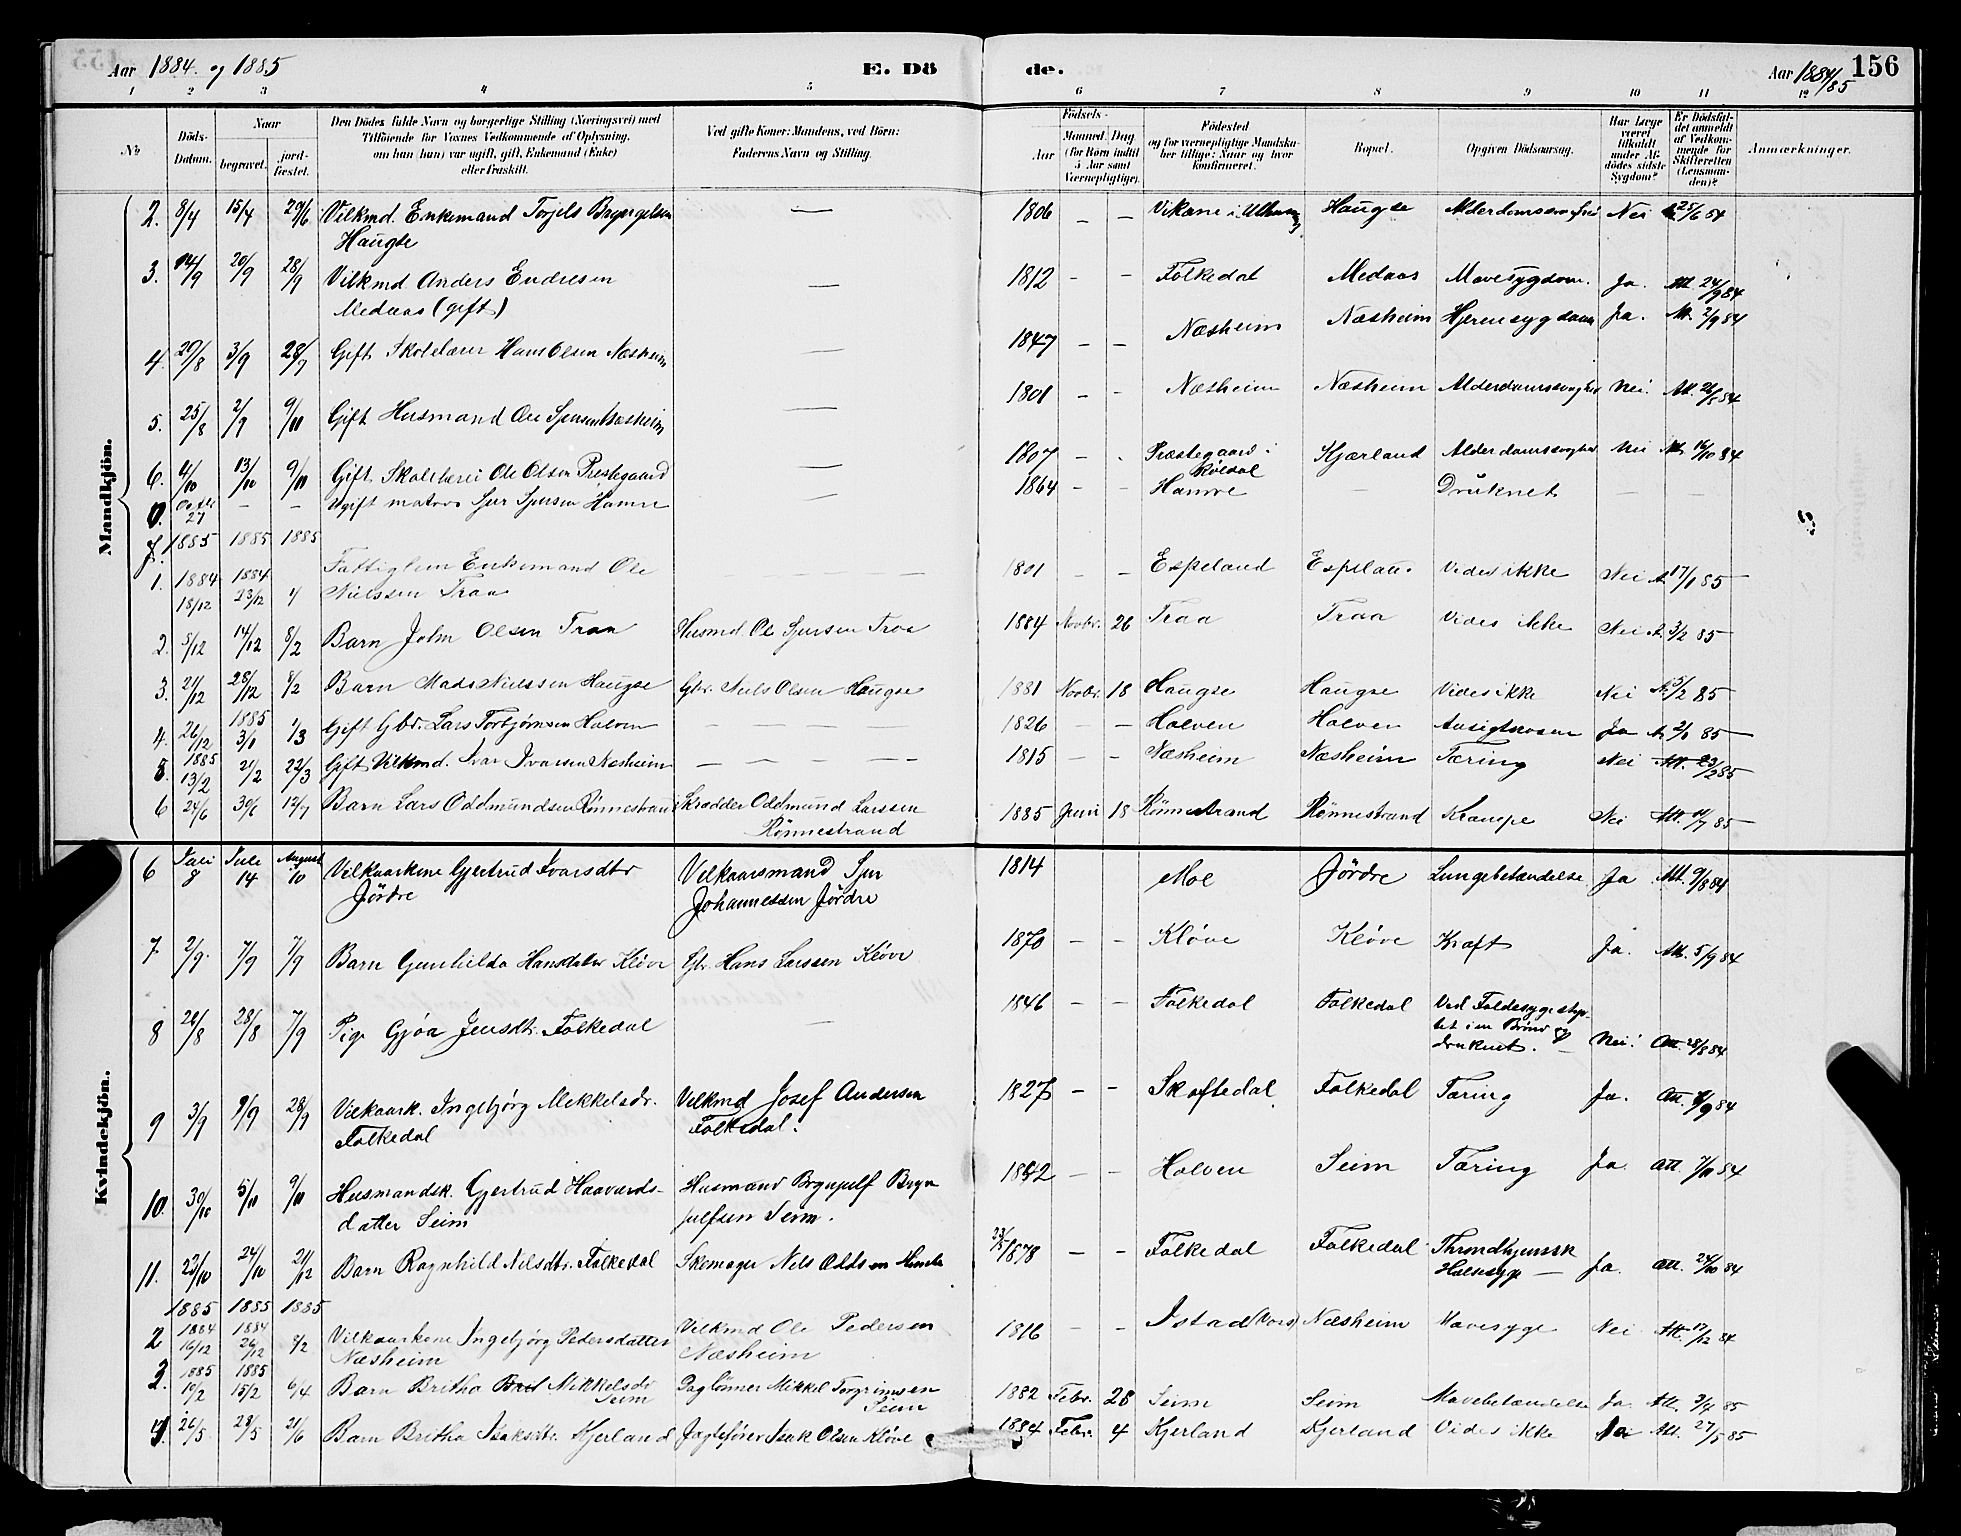 Aar 1884. og 1885 E. Dö de. Aar 1884/85 156
1 2 3 4 5 6 7 8 9 10 11 12
No Döds-Datum. Naar begravet. jordfæstet. Den Dödes fulde Navn og borgerlige Stilling (Næringsvei) med Tilföiende for Voxnes Vedkommende af Oplysning, om han (hun) var ugift, gift, Enkemand (Enke) eller fraskilt. Ved gifte Koner: Mandens, ved Börn: Faderens Navn og Stilling. Födsels- Aar Maaned Dag (for Börn indtil 5 Aar samt Værnepligtige). Födested og for værnepligtige Mandskaber tillige: Naar og hvor konfirmeret. Bopæl. Opgiven Dödsaarsag. Har Læge været tilkaldt under Afdödes sidste Sygdom? Er Dödsfaldet anmeldt af Vedkommende for Skifteretten (Lensmanden)? Anmærkninger.
Mandkjön.
2. 8/4 15/4 29/6 Vilkmd. Enkemand Torjels — 1806 – – Vikane i Haugse Nei 25/6 84
Haugse
3. 14/9 20/9 28/9 Vilkmd Anders Endresen — 1812 – – Folkedal Medaas Mavesygdom. Ja. Att 24/9 84
Medaas (gift)
4. 29/8 3/9 28/9 Gift Skolelærer Hans Olsen Næsheim — 1847 – – Næsheim Næsheim Hjernesygdom Ja. Att. 2/9 84
5. 25/8 2/9 9/11 Gift Husmand Ole Sjursen Næsheim — 1801 – – Næsheim Næsheim Alderdomssvaghed Nei. Att. 84
6. 4/10 13/10 9/11 Gift Skolelærer Ole Olsen Prestegaard — 1807 – . Præstegaard i Røldal Kjærland Alderdomssvaghed Nei 16/10 84
0. 27 – – Ugift matros Sjur Sjursen Hamre — 1864 – – Hamre – Druknet – –
7. 1885 1885 1885
1. 1884 18/12 1884 23/12 Fattiglem Enkemand Ole Nielssen Traa — — — 1801 – – Espeland Vides ikke Nei 17/1 85
2. 5/12 14/12 8/2 Barn John Olsen Traa Husmd. Ole Sjursen Traa 1884 Novbr. 26 Traa Traa Vides ikke Nei 3/2 85
3. 21/12 28/12 8/2 Barn Mads Nielssen Haugse Gbr. Niels Olsen Haugse 1881 Novbr. 18 Haugse Haugse Vides ikke Nei 3/2 85
4. 26/12 1885 3/1 1/3 Gift Gbr. Lars Torbjørnsen Holven — — — 1826 – – Holven Holven Ansigtsrosen Ja 2/1 85
5. 1885 13/2 21/2 22/3 Gift Vilkmd. Ivar Ivarsen Næsheim — — — 1815 – – Næsheim Næsheim Tæring Nei Att. 23/2 85
6 24/6 30/6 12/7 Barn Lars Oddmundsen Rönnestrand Skrædder Oddmund Larssen 1885 Juni 18 Rönnestrand Rönnestrand Krampe Nei Att. 85
Rönnestrand
Kvindekjön.
6 Juli 8 Juli 14 August 10 Vilkaarkone Gjertrud Ivarsdtr Vilkaarsmand Sjur 1814 Moe Jördre Lungebetændelse Ja Att. 9/8 84
Jördre Johannessen Jördre
7. 2/9. 7/9 7/9 Barn Gunhilda Hansdatter Klöve Gbr. Hans Larssen Klöve 1870 – – Klöve Klöve Kræft Ja. Att. 5/9 84
8 26/8 28/8 7/9 Pige Gjøa Jensdtr. Folkedal — 1846 – – Folkedal Folkedal Ved Faldesyge styrtet i en Brönd og druknet. Nei. Att. 28/8 84
9 3/9 9/9 28/9 Vilkaark. Ingebjörg Mekkelsdr. Vilkmd Josef Andersen 1827 – – Skoftedal Folkedal Tæring Ja. Att. 84
Folkedal Folkedal.
10. 30/10 5/11 9/11 Husmandsk. Gjertrud Haavards- Husmand Brynjulf Bryn 1842 – – Holven Seim Tæring Ja Att 7/11 84
datter Seim julfsen Seim.
11. 23/10 24/10 21/12 Barn Ragnhild Nilsdtr. Folkedal Skomager Nils 1878 – – Folkedal Folkedal Throndhjemsk Halssyge — Ja. Att. 24/10 84
1885 1885 1885
2 1884 16/12 1884 26/12 8/2 Vilkaarkone Ingebjörg Pedersdatter Vilkmd Ole Pedersen 1816 – – Istad (Vors) Næsheim Mavesyge Nei Att. 17/12 84
Næsheim Næsheim
3. 1885 10/2 1885 15/2 6/4 Barn Britha Mikkelsdr Seim Daglönner Mikkel Torgrimsen Seim 1882 Febr. 28 Seim Seim Mavebetændelse Ja Att. 85
4 26/5. 28/5 21/6 Barn Britha Isaksdtr. Kjerland Jagtefører Isak Olsen Klöve 1884 Febr. 4 Kjerland Kjerland Vides ikke Att. 27/5 85